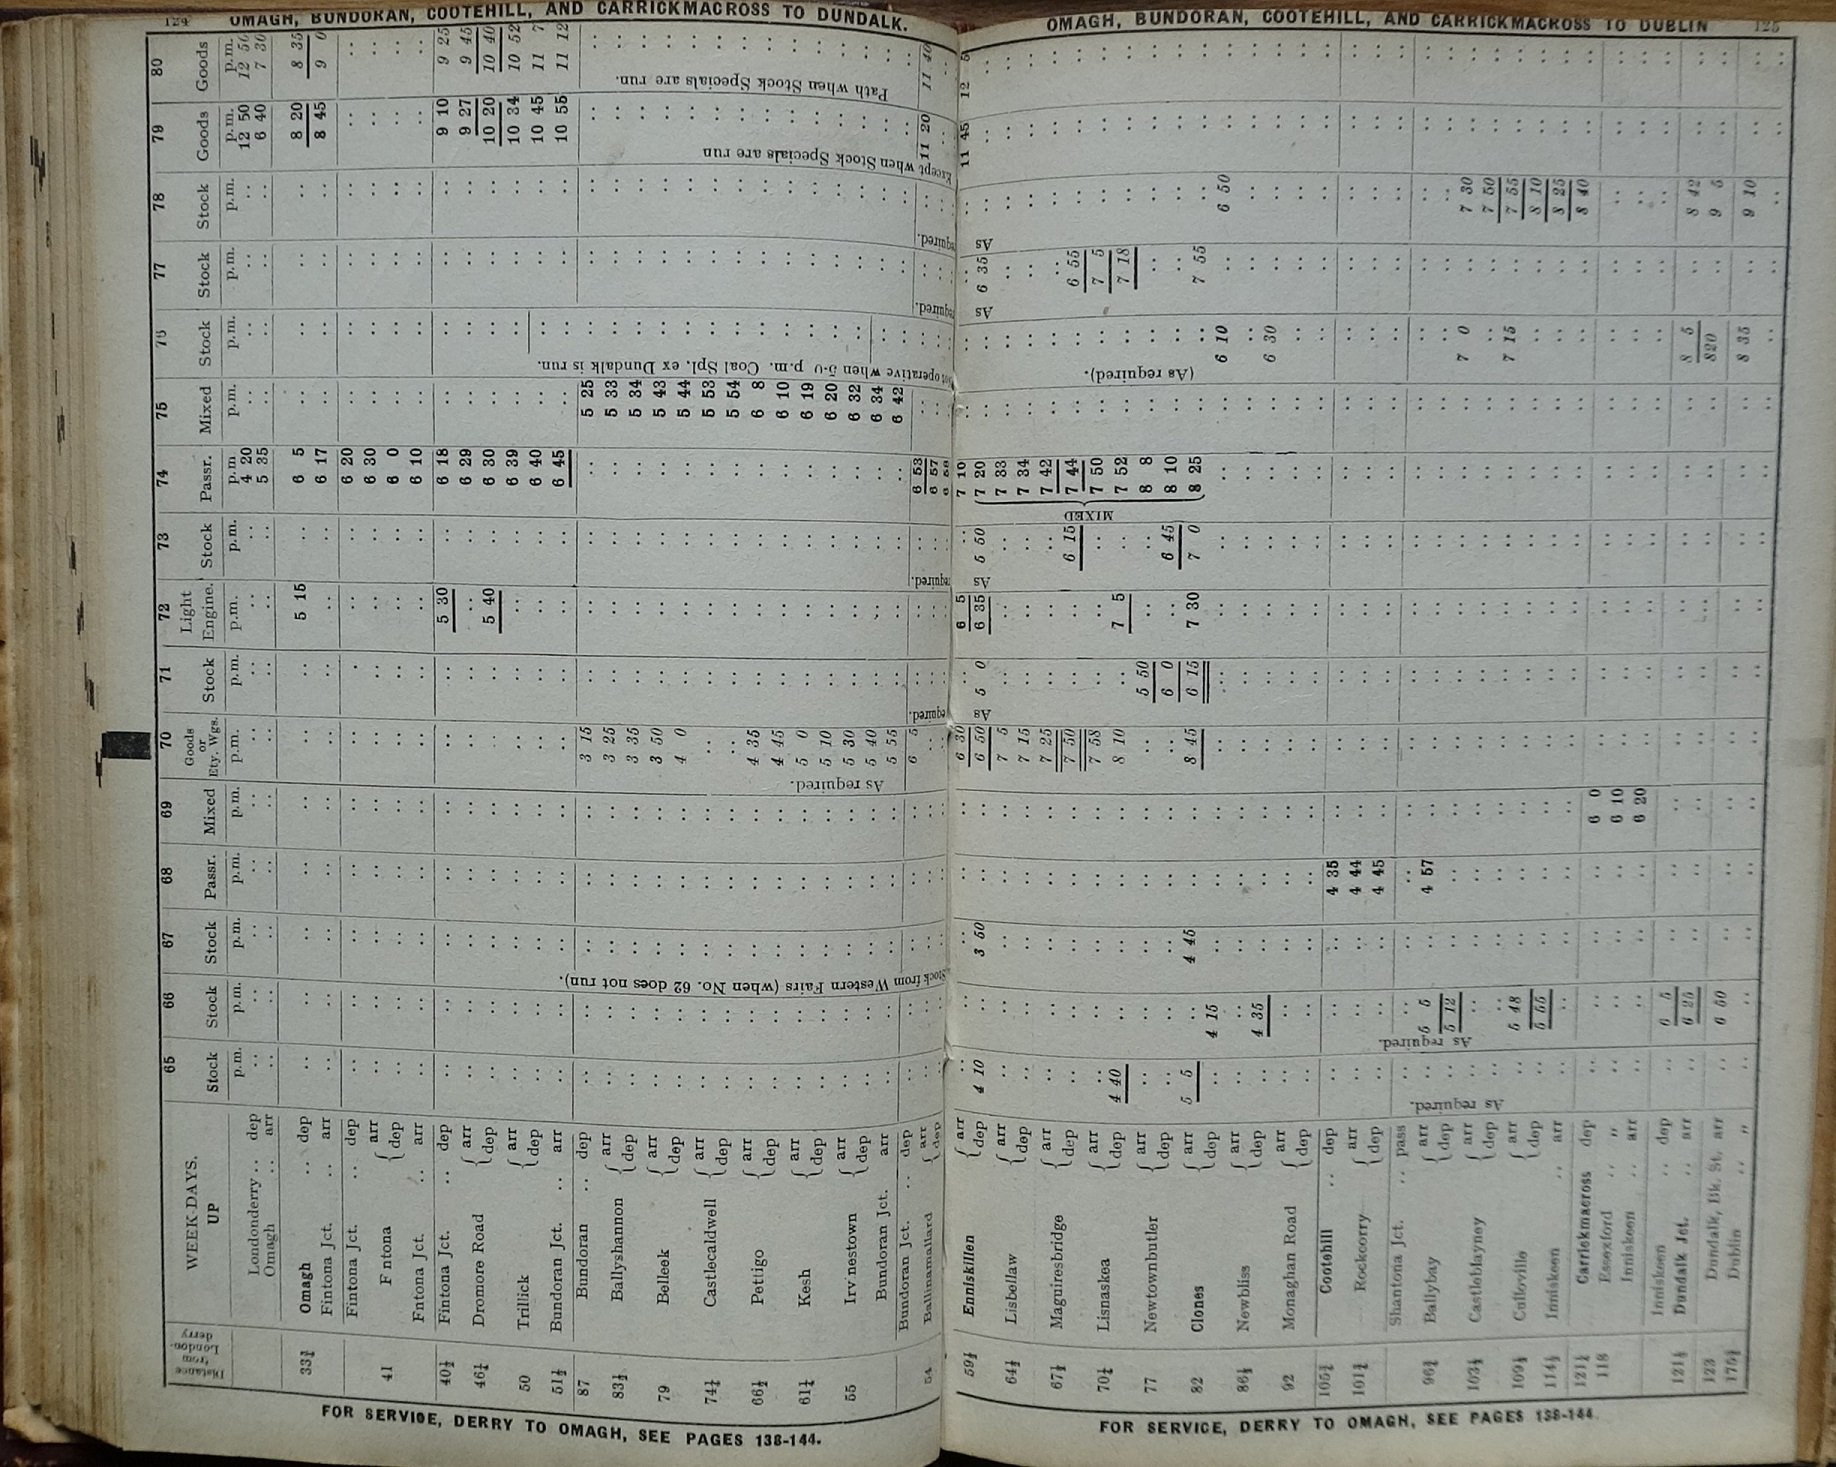 124 OMAGH, BUNDORAN, COOTEHILL, AND CARRICKMACROSS TO DUNDALK.
Distance from London-derry WEEK-DAYS. UP 65 66 67 68 69 70 71 72 73 74 75 76 77 78 79 80
Stock Stock Stock Passr. Mixed Goods or Ety. Wgs. Stock Light Engine. Stock Passr. Mixed Stock Stock Stock Goods Goods
p.m. p.m. p.m. p.m. p.m. p.m. p.m. p.m. p.m. p.m p.m. p.m. p.m. p.m. p.m. p.m.
Londonderry .. dep 4 20 12 50 12 50
Omagh .. arr 5 35 6 40 7 30
33¾ Omagh .. dep 5 15 6 5 8 20 8 35
Fintona Jct. arr 6 17 8 45 9 0
Fintona Jct. .. dep 6 20
41 F ntona arr 6 30
dep 6 0
Fntona Jct. .. arr 6 10
40½ Fintona Jct. .. dep 5 30 6 18 9 10 9 25
46¼ Dromore Road arr 6 29 9 27 9 45
dep 5 40 6 30 10 20 10 40
50 Trillick arr 6 39 10 34 10 52
dep 6 40 10 45 11 7
51¼ Bundoran Jct. .. arr 6 45 10 55 11 12
87 Bundoran .. dep 3 15 5 25
83½ Ballyshannon arr 3 25 5 33
dep 3 35 5 34
79 Belleek arr 3 50 5 43
dep 4 0 5 44
74¼ Castlecaldwell arr 5 53
dep 5 54
66½ Pettigo arr 4 35 6 8
dep 4 45 6 10
61¼ Kesh arr 5 0 6 19
dep 5 10 6 20
55 Irvinestown arr 5 30 6 32
dep 5 40 6 34
Bundoran Jct. arr 5 55 6 42
Bundoran Jct. .. dep 6 5 6 53 11 20 11 40
54 Ballinamallard arr 6 57
dep 6 58
Stock from Western Fairs (when No. 62 does not run).
As required.
Not operative when 5-0 p.m. Coal Spl. ex Dundalk is run.
Except when Stock Specials are run
Path when Stock Specials are run.
FOR SERVICE, DERRY TO OMAGH, SEE PAGES 138-144.
OMAGH, BUNDORAN, COOTEHILL, AND CARRICKMACROSS TO DUBLIN 125
59½ Enniskillen arr 6 30 6 5 7 10 11 45 12 5
dep 4 10 3 50 6 50 5 0 6 35 5 50 7 20 6 35
64½ Lisbellaw arr 7 5 7 33
dep 7 15 7 34
67½ Maguiresbridge arr 7 25 7 42
dep 7 50 6 15 7 44 6 55
70¼ Lisnaskea arr 7 58 7 50 7 5
dep 4 40 8 10 7 5 7 52 7 18
77 Newtownbutler arr 5 50 8 8
dep 6 0 6 45 8 10
82 Clones arr 5 5 4 45 8 45 6 15 7 30 7 0 8 25 7 55
dep 4 15 6 10 6 50
86½ Newbliss arr
dep 4 35 6 30
92 Monaghan Road arr
dep
105¾ Cootehill .. dep 4 35
101¾ Rockcorry arr 4 44
dep 4 45
Shantona Jct. .. pass
96¾ Ballybay arr 5 5 4 57
dep 5 12
103½ Castleblayney arr 7 0 7 30
dep 7 50
109½ Culloville arr 5 48 7 15 7 55
dep 5 55 8 10
114½ Inniskeen .. arr 8 25
8 40
121¼ Carrickmacross dep 6 0
118 Essexford .. „ 6 10
Inniskeen .. arr 6 20
Inniskeen .. dep 6 5 8 5 8 42
121½ Dundalk Jct. .. arr 6 25 820 9 5
123 Dundalk, Bk. St. arr 6 50 8 35 9 10
175½ Dublin .. „
As required.
As required.
As required.
As required.
MIXED
(As required).
As required.
As required.
FOR SERVICE, DERRY TO OMAGH, SEE PAGES 138-144.